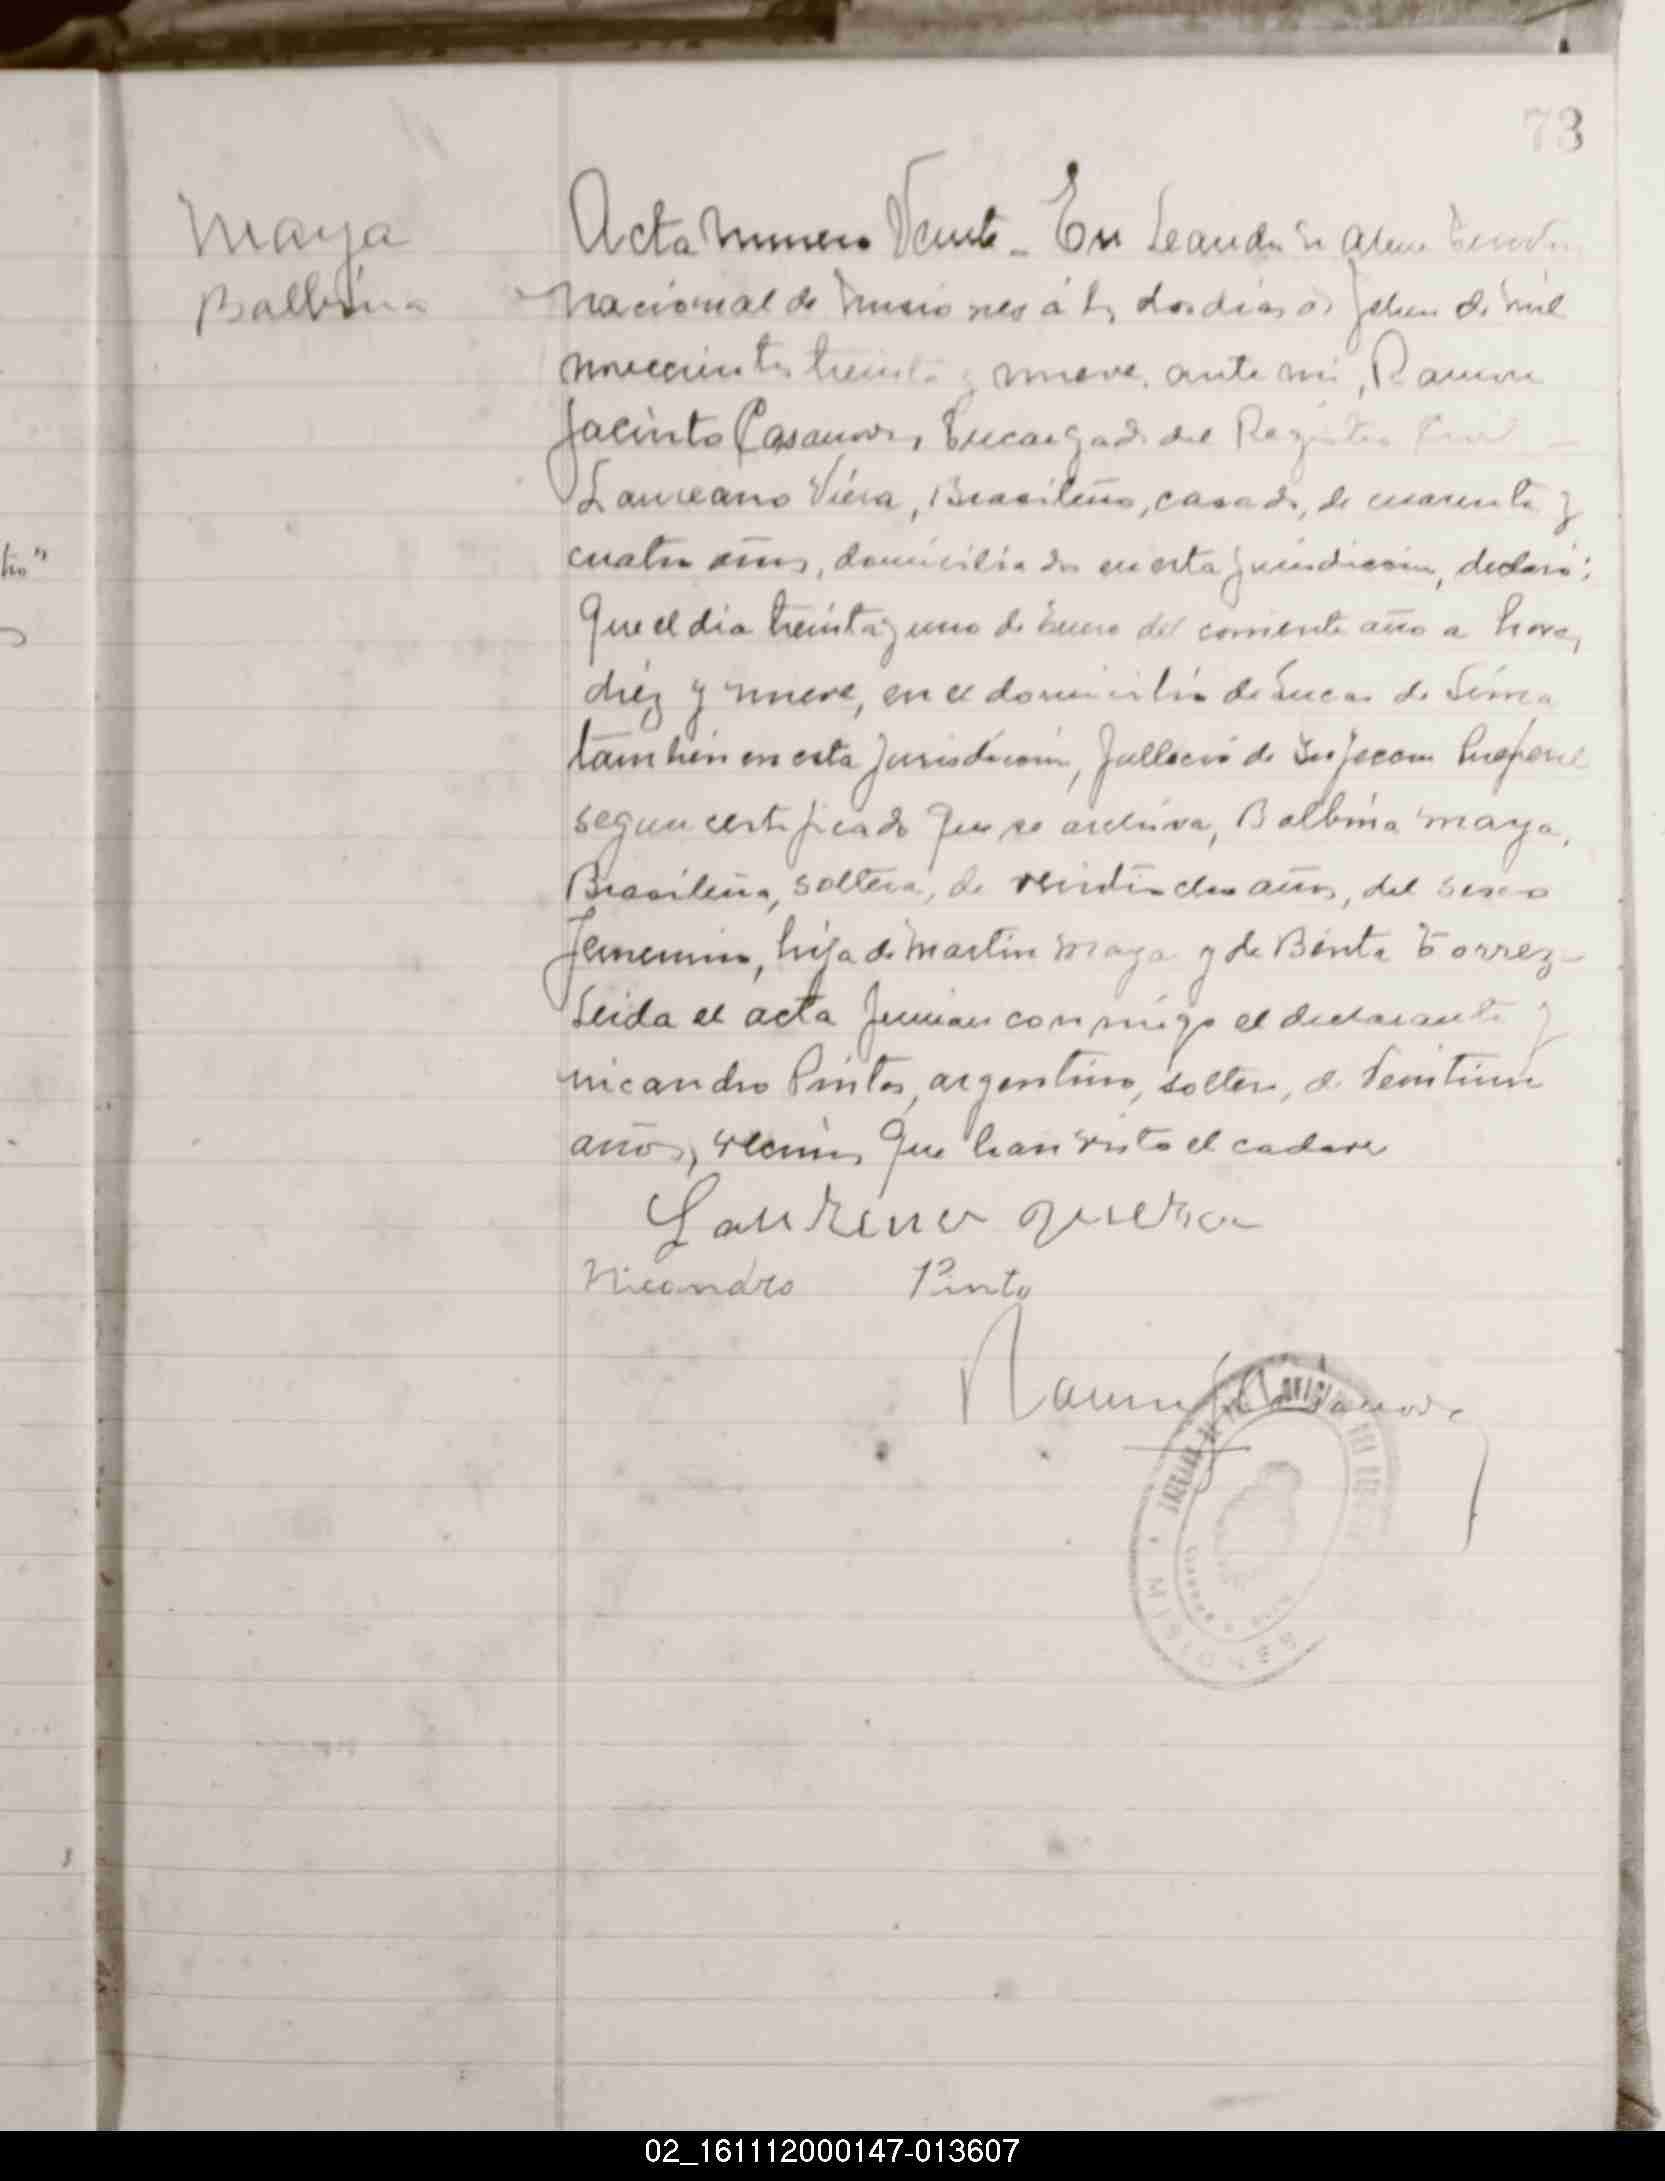 73
Maya
Balbina
Acta numero Veinte - En Leandro N Alem
Nacional de Misiones á los dos dias de febrero de mil
novecientos treinta y nueve, ante mi, Ramon
Jacinto Casanova, Encargado del Registro Civil
Laureano Viera, Brasileño, casado, de cuarenta y
cuatro años, domiciliado en esta jurisdiccion, declaró:
Que el dia treinta y uno de Enero del corriente año a horas
diez y nueve, en el domicilio de Lucas de Lima
tambien en esta jurisdicion, falleció de
segun certificado que se archiva, Balbina Maya,
Brasileña, soltera, de años, del sexo
femenino, hija de Martin Maya y de Benta Torrez
Leida el acta firman conmigo el declarante y
nicandro Pintos, argentino, soltero, de Veintiun
años, vecinos que han visto el cadaver
Nicandro Pinto
MISIONES
02_161112000147-013607